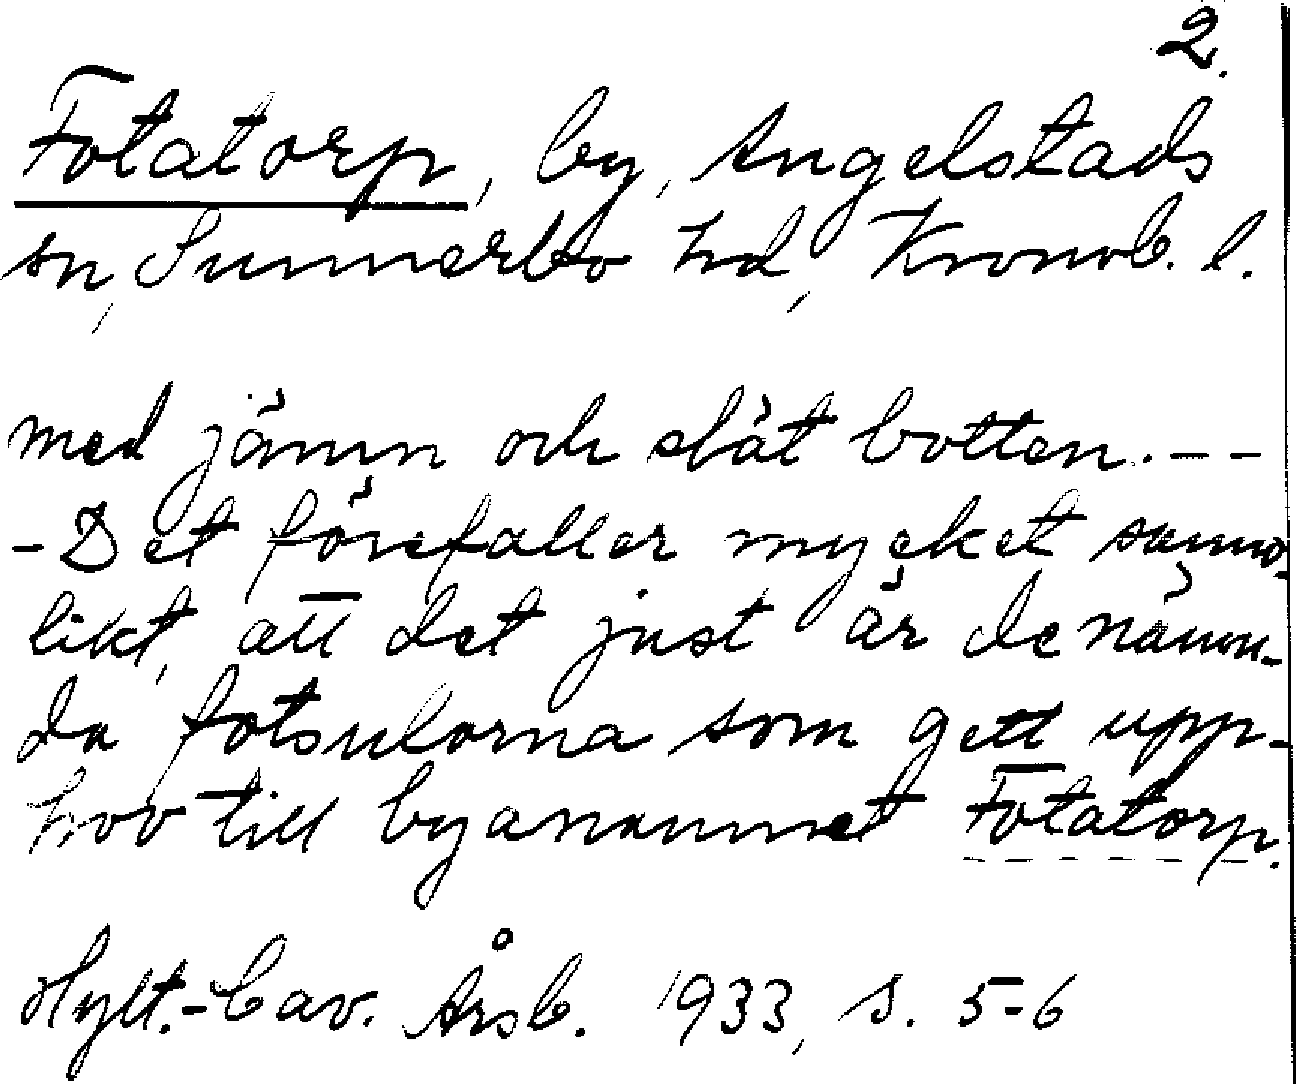 2.
Fotatorp, by, Angelstads
sn, Sunnerbo hd, Kronob. l.
med jämn och slät botten. --
- Det förefaller mycket sanno-
likt, att det just är de nämn-
da fotsulorna som gett upp-
hov till byanamnet Fotatorp.
Hylt.-Cav. Årsb. 1933, s. 5-6